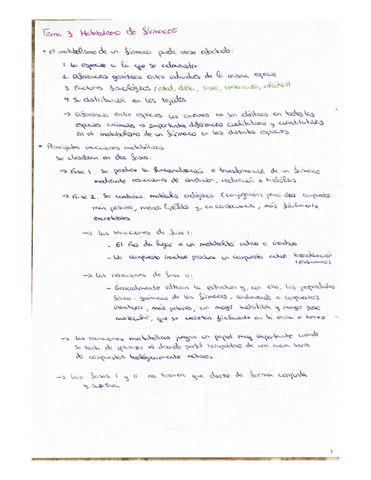 Tema 3 Metabolismo de fármacos
• El metabolismo de un fármaco puede verse afectado:
1 La especie a la que se administra
2 Diferencias genéticas entre individuos de la misma especie
3 Factores fisiológicos (edad, dieta, sexo, embarazo, alcohol)
4 Su distribución en los tejidos
→ Diferencia entre especies. Las enzimas no son idénticas en todas las
especies animales → importantes diferencias cualitativas y cuantitativas
en el metabolismo de un fármaco en las distintas especies
• Principales reacciones metabólicas
Se clasifican en dos fases:
→ Fase 1. Se produce la funcionalización o transformación de un fármaco
mediante reacciones de oxidación, reducción e hidrólisis
→ Fase 2. Se combina molécula endógena (conjugación) para dar compuestos
más polares, menos lipófilos y, en consecuencia, más fácilmente
excretables
→ Las reacciones de fase I:
- El fco da lugar a un metabolito activo o inactivo
- Un compuesto inactivo produce un compuesto activo: bioactivación
(profármaco)
→ Las reacciones de fase II:
- Generalmente alteran la estructura y, con ello, las propiedades
físico-químicas de los fármacos, conduciendo a compuestos
inactivos, más polares, con mayor hidrofilia y mayor peso
molecular, que se excretan fácilmente en la orina o heces
→ Las reacciones metabólicas juegan un papel muy importante cuando
se trata de optimizar el perfil terapéutico de una nueva serie
de compuestos biológicamente activos
→ Las fases I y II no tienen que darse de forma conjunta
y sucesiva
1